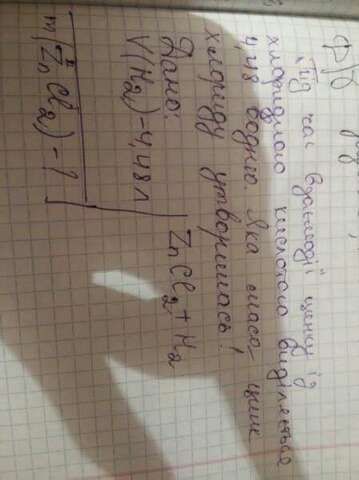 Під час взаємодії цинку із
хлоридною кислотою виділяється
4,48 водню. Яка маса цинк
хлориду утворилась?
Дано:
V(H2)-4,48л
ZnCl2+H2
m(ZnCl2)-?